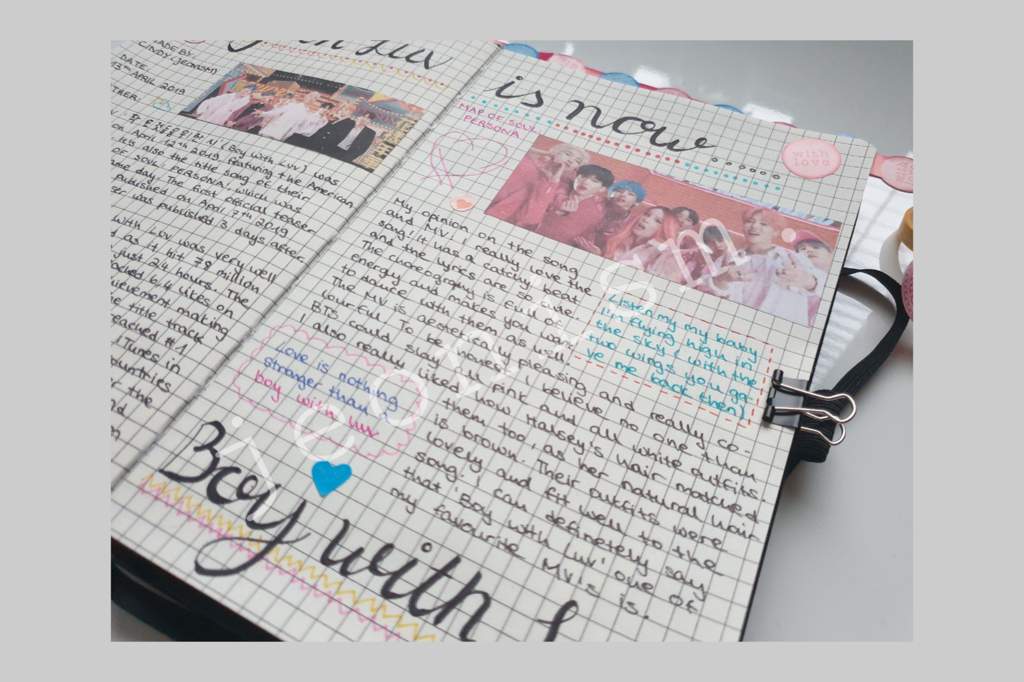 Luv
MADE BY:
CINDY (JEONISM)
DATE:
13TH APRIL 2019
[Boy with Luv] was
on April 12th 2019 featuring the American
It's also the title song of their
OF SOUL: PERSONA', which was
same day. The first official teaser
published on April 7TH 2019
was published 3 days after.
with Luv was very well
as it hit 78 million
just 24 hours. The
6,4 likes on
making
title track
reached #1
iTunes in
countries
the
is now
MAP OF SOUL
PERSONA
with
love
My opinion on the song
and MV: I really love the
song! It was a catchy beat
and the lyrics are so cute.
The choreography is full of
energy and makes you want
to dance with them as well.
The MV is aesthetically pleasing and really co-
lourful. To be honest, I believe no one than
BTS could slay all pink and all white outfits.
I also really liked how Halsey's hair matched
them too, as her natural hair
is brown. Their outfits were
lovely and fit well to the
song. I can definitely say
that 'Boy with Luv' one of
my favourite MV's is.
Listen my my baby
I'm flying high in
the sky ( with the
two wings you ga-
ve me back then)
Love is nothing
stronger than a
boy with luv
Boy with
jeonism